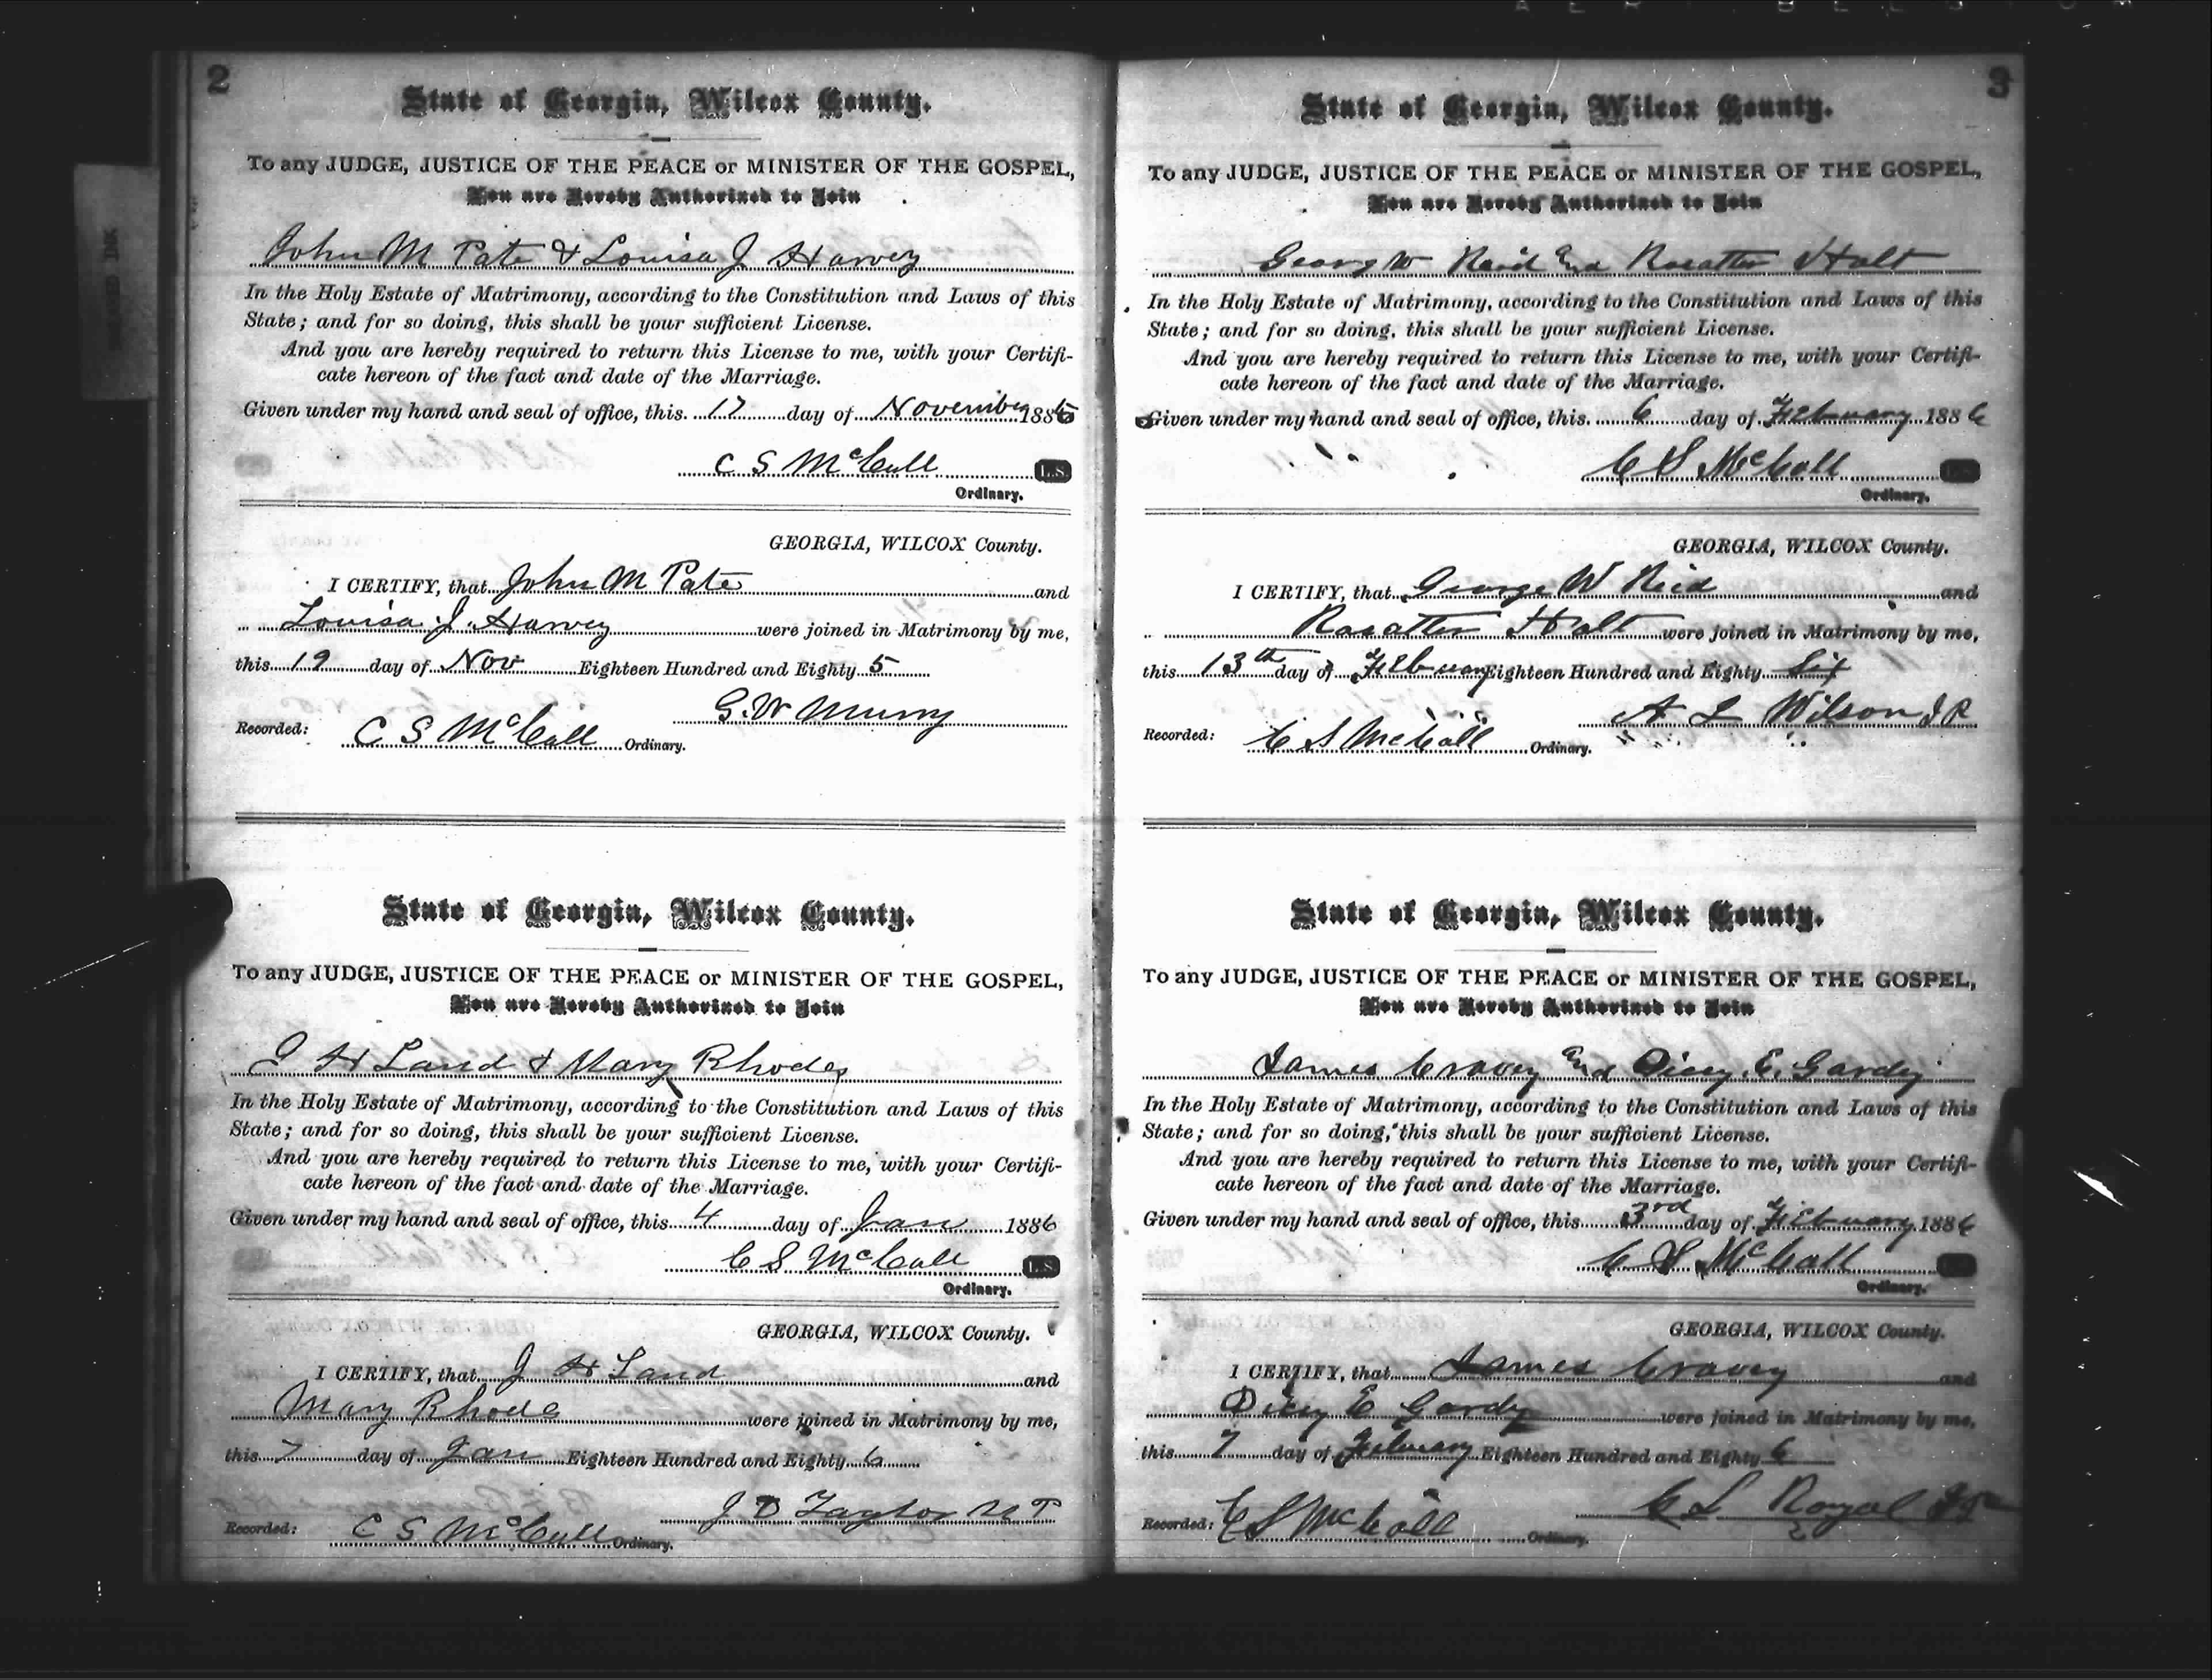 2
State of Georgia, Wilcox County.
To any JUDGE, JUSTICE OF THE PEACE or MINISTER OF THE GOSPEL,
You are Hereby Authorized to Join
John M Pate & Louisa J Harvey
In the Holy Estate of Matrimony, according to the Constitution and Laws of this
State; and for so doing, this shall be your sufficient License.
And you are hereby required to return this License to me, with your Certifi-
cate hereon of the fact and date of the Marriage.
Given under my hand and seal of office, this 17 day of November 1885
C S McCall L.S.
Ordinary.
GEORGIA, WILCOX County.
I CERTIFY, that John M Pate and
Louisa J. Harvey were joined in Matrimony by me,
this 19 day of Nov Eighteen Hundred and Eighty 5
G. W Murry
Recorded: C S McCall Ordinary.
State of Georgia, Wilcox County.
To any JUDGE, JUSTICE OF THE PEACE or MINISTER OF THE GOSPEL,
You are Hereby Authorized to Join
J H Land & Mary Rhodes
In the Holy Estate of Matrimony, according to the Constitution and Laws of this
State; and for so doing, this shall be your sufficient License.
And you are hereby required to return this License to me, with your Certifi-
cate hereon of the fact and date of the Marriage.
Given under my hand and seal of office, this 4 day of Jan 1886
C S McCall L.S.
Ordinary.
GEORGIA, WILCOX County.
I CERTIFY, that J H Land and
Mary Rhodes were joined in Matrimony by me,
this 7 day of Jan Eighteen Hundred and Eighty 6
J D Taylor
Recorded: C S McCall Ordinary.
3
State of Georgia, Wilcox County.
To any JUDGE, JUSTICE OF THE PEACE or MINISTER OF THE GOSPEL,
You are Hereby Authorized to Join
Georg W Reid and Rosatter Holt
In the Holy Estate of Matrimony, according to the Constitution and Laws of this
State; and for so doing, this shall be your sufficient License.
And you are hereby required to return this License to me, with your Certifi-
cate hereon of the fact and date of the Marriage.
Given under my hand and seal of office, this 6 day of February 1886
C S McCall
Ordinary.
GEORGIA, WILCOX County.
I CERTIFY, that George W Reid and
Rosatter Holt were joined in Matrimony by me,
this 13th day of February Eighteen Hundred and Eighty Six
A L Wilson J P
Recorded: C S McCall Ordinary.
State of Georgia, Wilcox County.
To any JUDGE, JUSTICE OF THE PEACE or MINISTER OF THE GOSPEL,
You are Hereby Authorized to Join
James Cravey and Dicey E. Gardy
In the Holy Estate of Matrimony, according to the Constitution and Laws of this
State; and for so doing, this shall be your sufficient License.
And you are hereby required to return this License to me, with your Certifi-
cate hereon of the fact and date of the Marriage.
Given under my hand and seal of office, this 3rd day of February 1886
C S McCall
Ordinary.
GEORGIA, WILCOX County.
I CERTIFY, that James Cravey and
Dicey E Gardy were joined in Matrimony by me,
this 7 day of February Eighteen Hundred and Eighty 6
C L Royal
Recorded: C S McCall Ordinary.